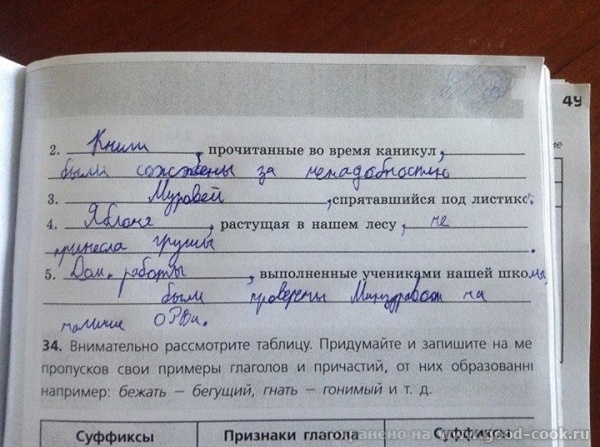 49
2. Книги, прочитанные во время каникул,
были сожжены за ненадобностью
3. Муравей, спрятавшийся под листик.
4. Яблоня, растущая в нашем лесу, не
принесла груши.
5. Дом. работы, выполненные учениками нашей школы,
были проверены Минздравом на
наличие ОРВи.
34. Внимательно рассмотрите таблицу. Придумайте и запишите на ме
пропусков свои примеры глаголов и причастий, от них образованны
например: бежать – бегущий, гнать – гонимый и т. д.
Суффиксы Признаки глагола Суффиксы